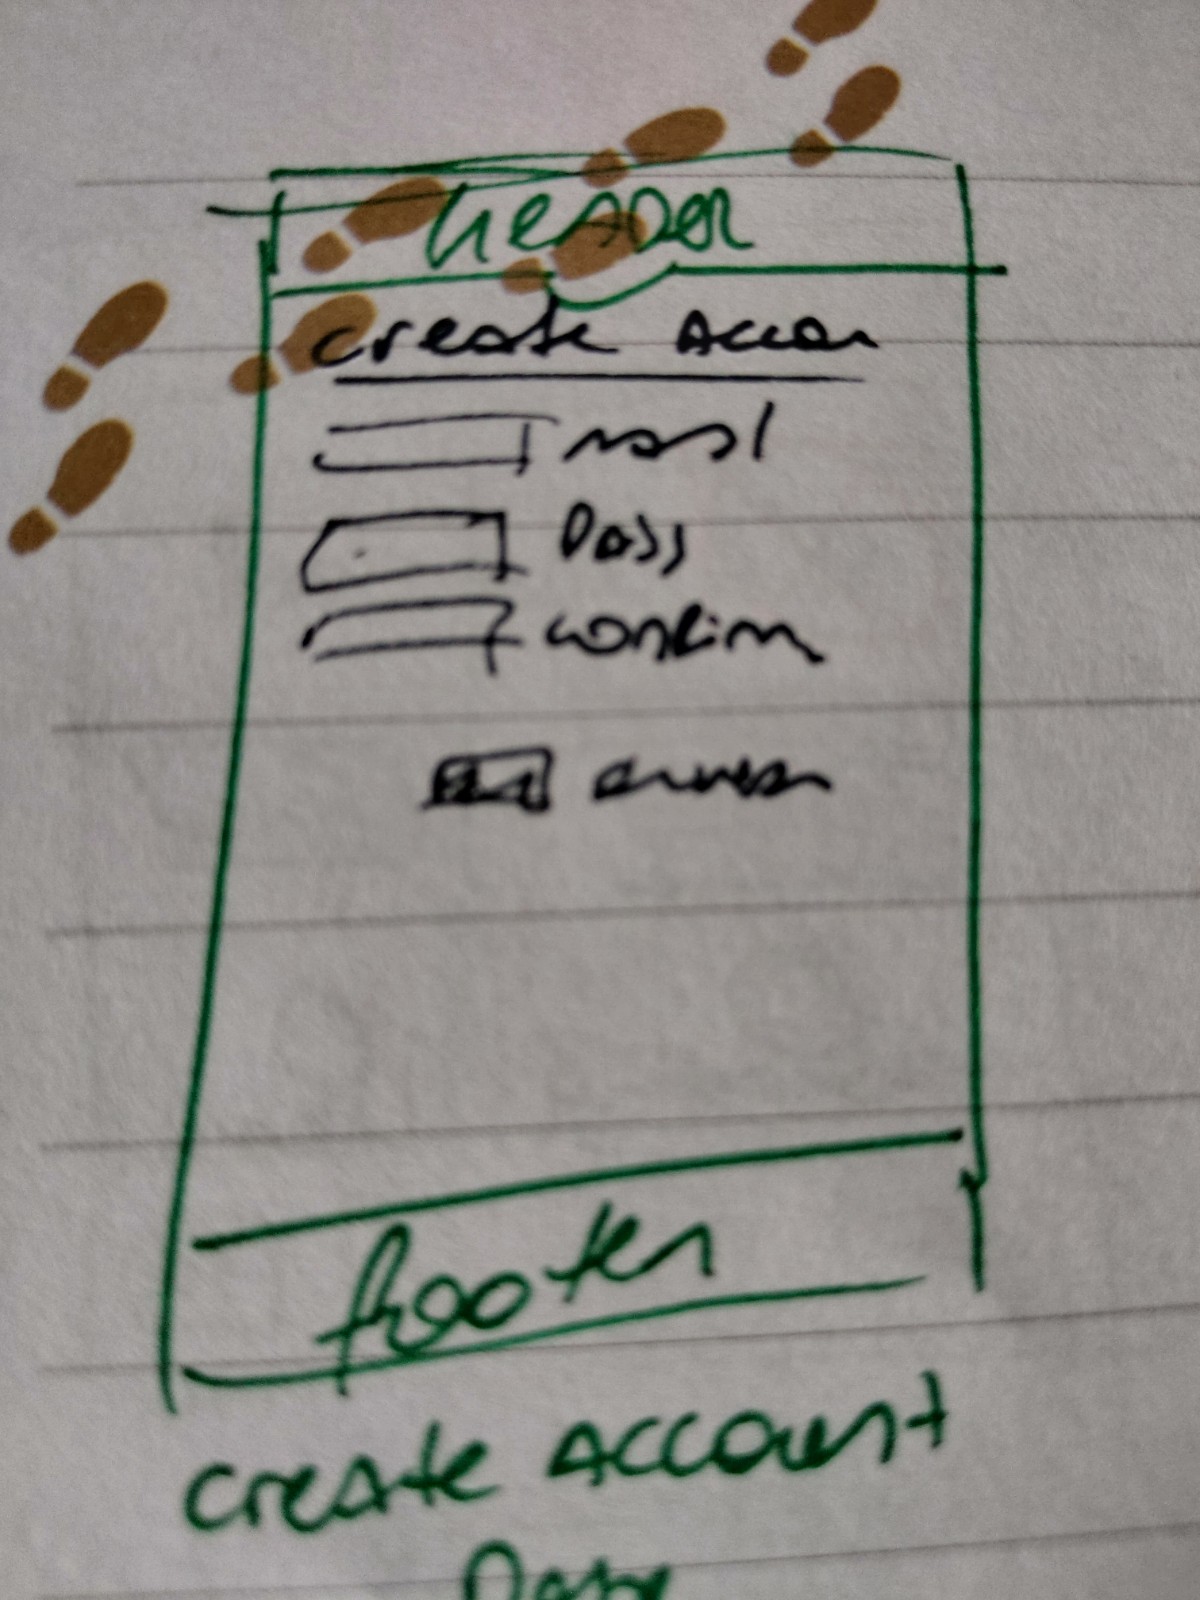 HEADER
create Accou
Pass
confirm
footer
create Account
Page